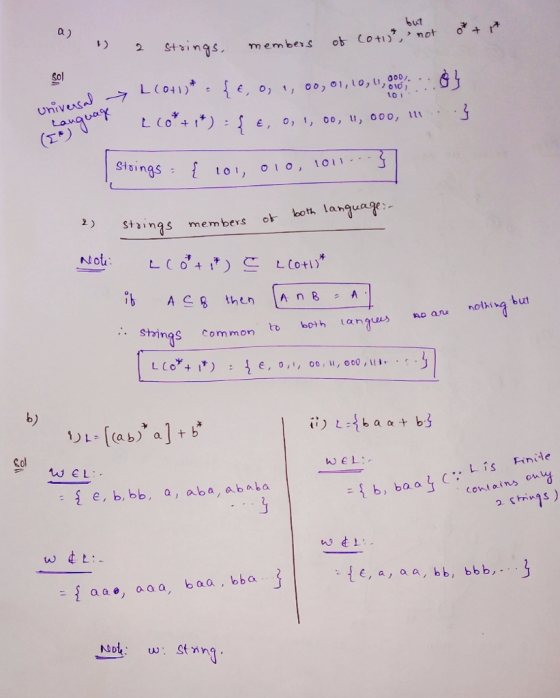 a)
1) 2 strings, members of (0+1)*, but not 0* + 1*
Sol
Universal Language (Σ*) → L(0+1)* = { ε, 0, 1, 00, 01, 10, 11, 000, 010, 101, ... }
L(0* + 1*) = { ε, 0, 1, 00, 11, 000, 111 ..... }
Strings = { 101, 010, 1011 ... }
2) Strings members of both language:-
Note: L(0* + 1*) ⊆ L(0+1)*
if A ⊆ B then A ∩ B = A.
∴ strings common to both are nothing but
L(0* + 1*) = { ε, 0, 1, 00, 11, 000, 111. ... }
b)
i) L = [(ab)* a] + b*
Sol
W ∈ L:-
= { ε, b, bb, a, aba, ababa
... }
W ∉ L:-
= { aa, aaa, baa, bba ... }
ii) L = {baa + b}
W ∈ L:-
= { b, baa } (∵ L is Finite
contains only
2 strings)
W ∉ L:-
= { ε, a, aa, bb, bbb, ... }
Note: w: string.